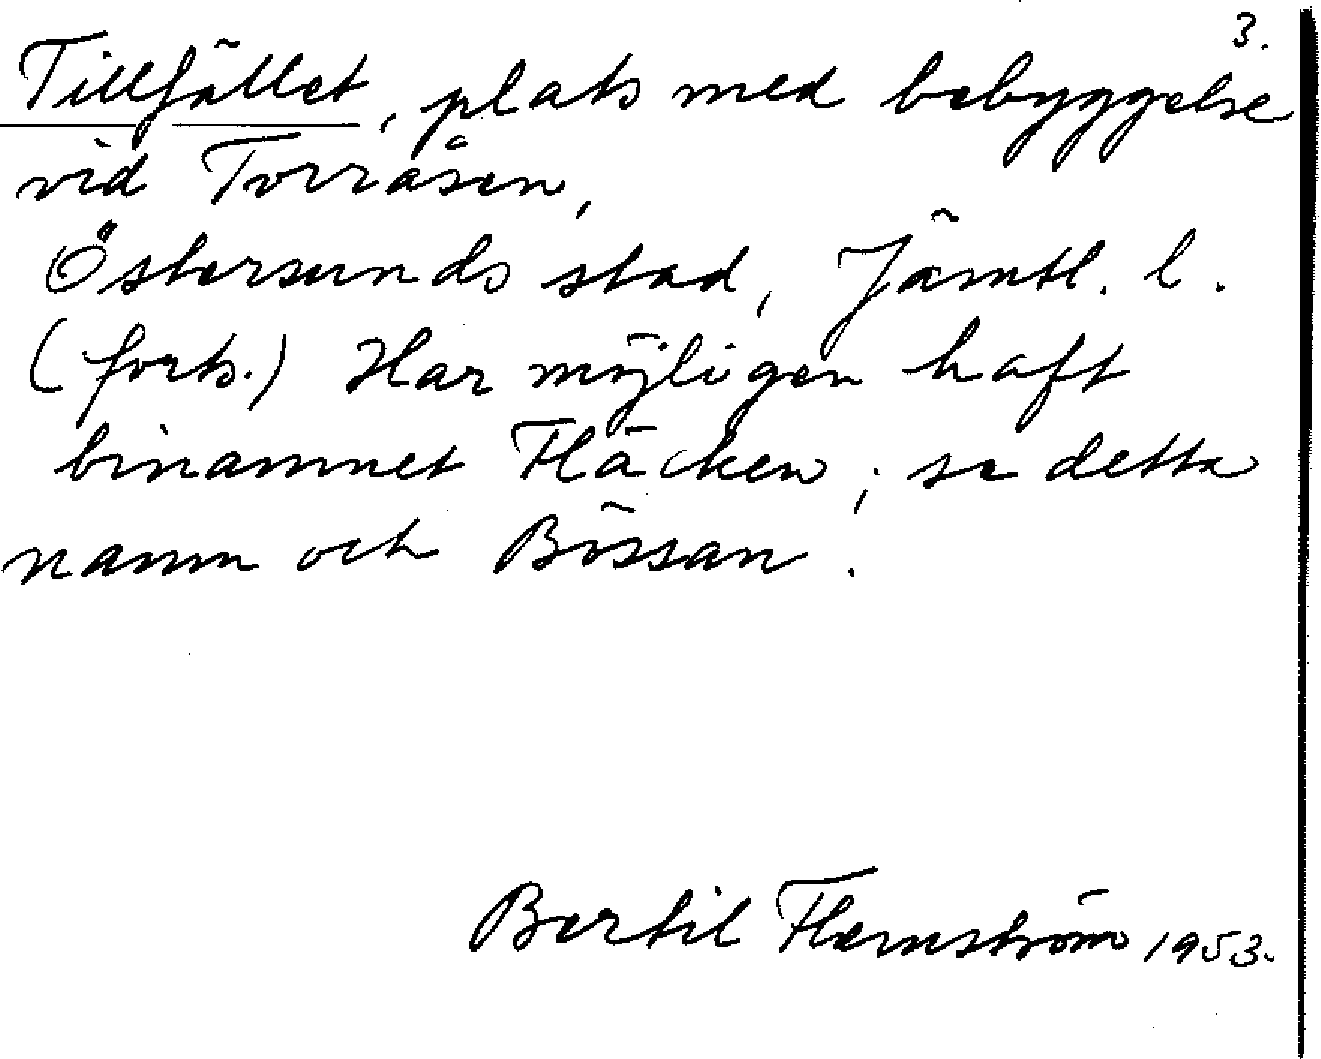 3.
Tillfället, plats med bebyggelse
vid Torråsen,
Östersunds stad, Jämtl. l.
(forts.) Har möjligen haft
binamnet Fläcken; se detta
namn och Bössan.
Bertil Flemström 1953.